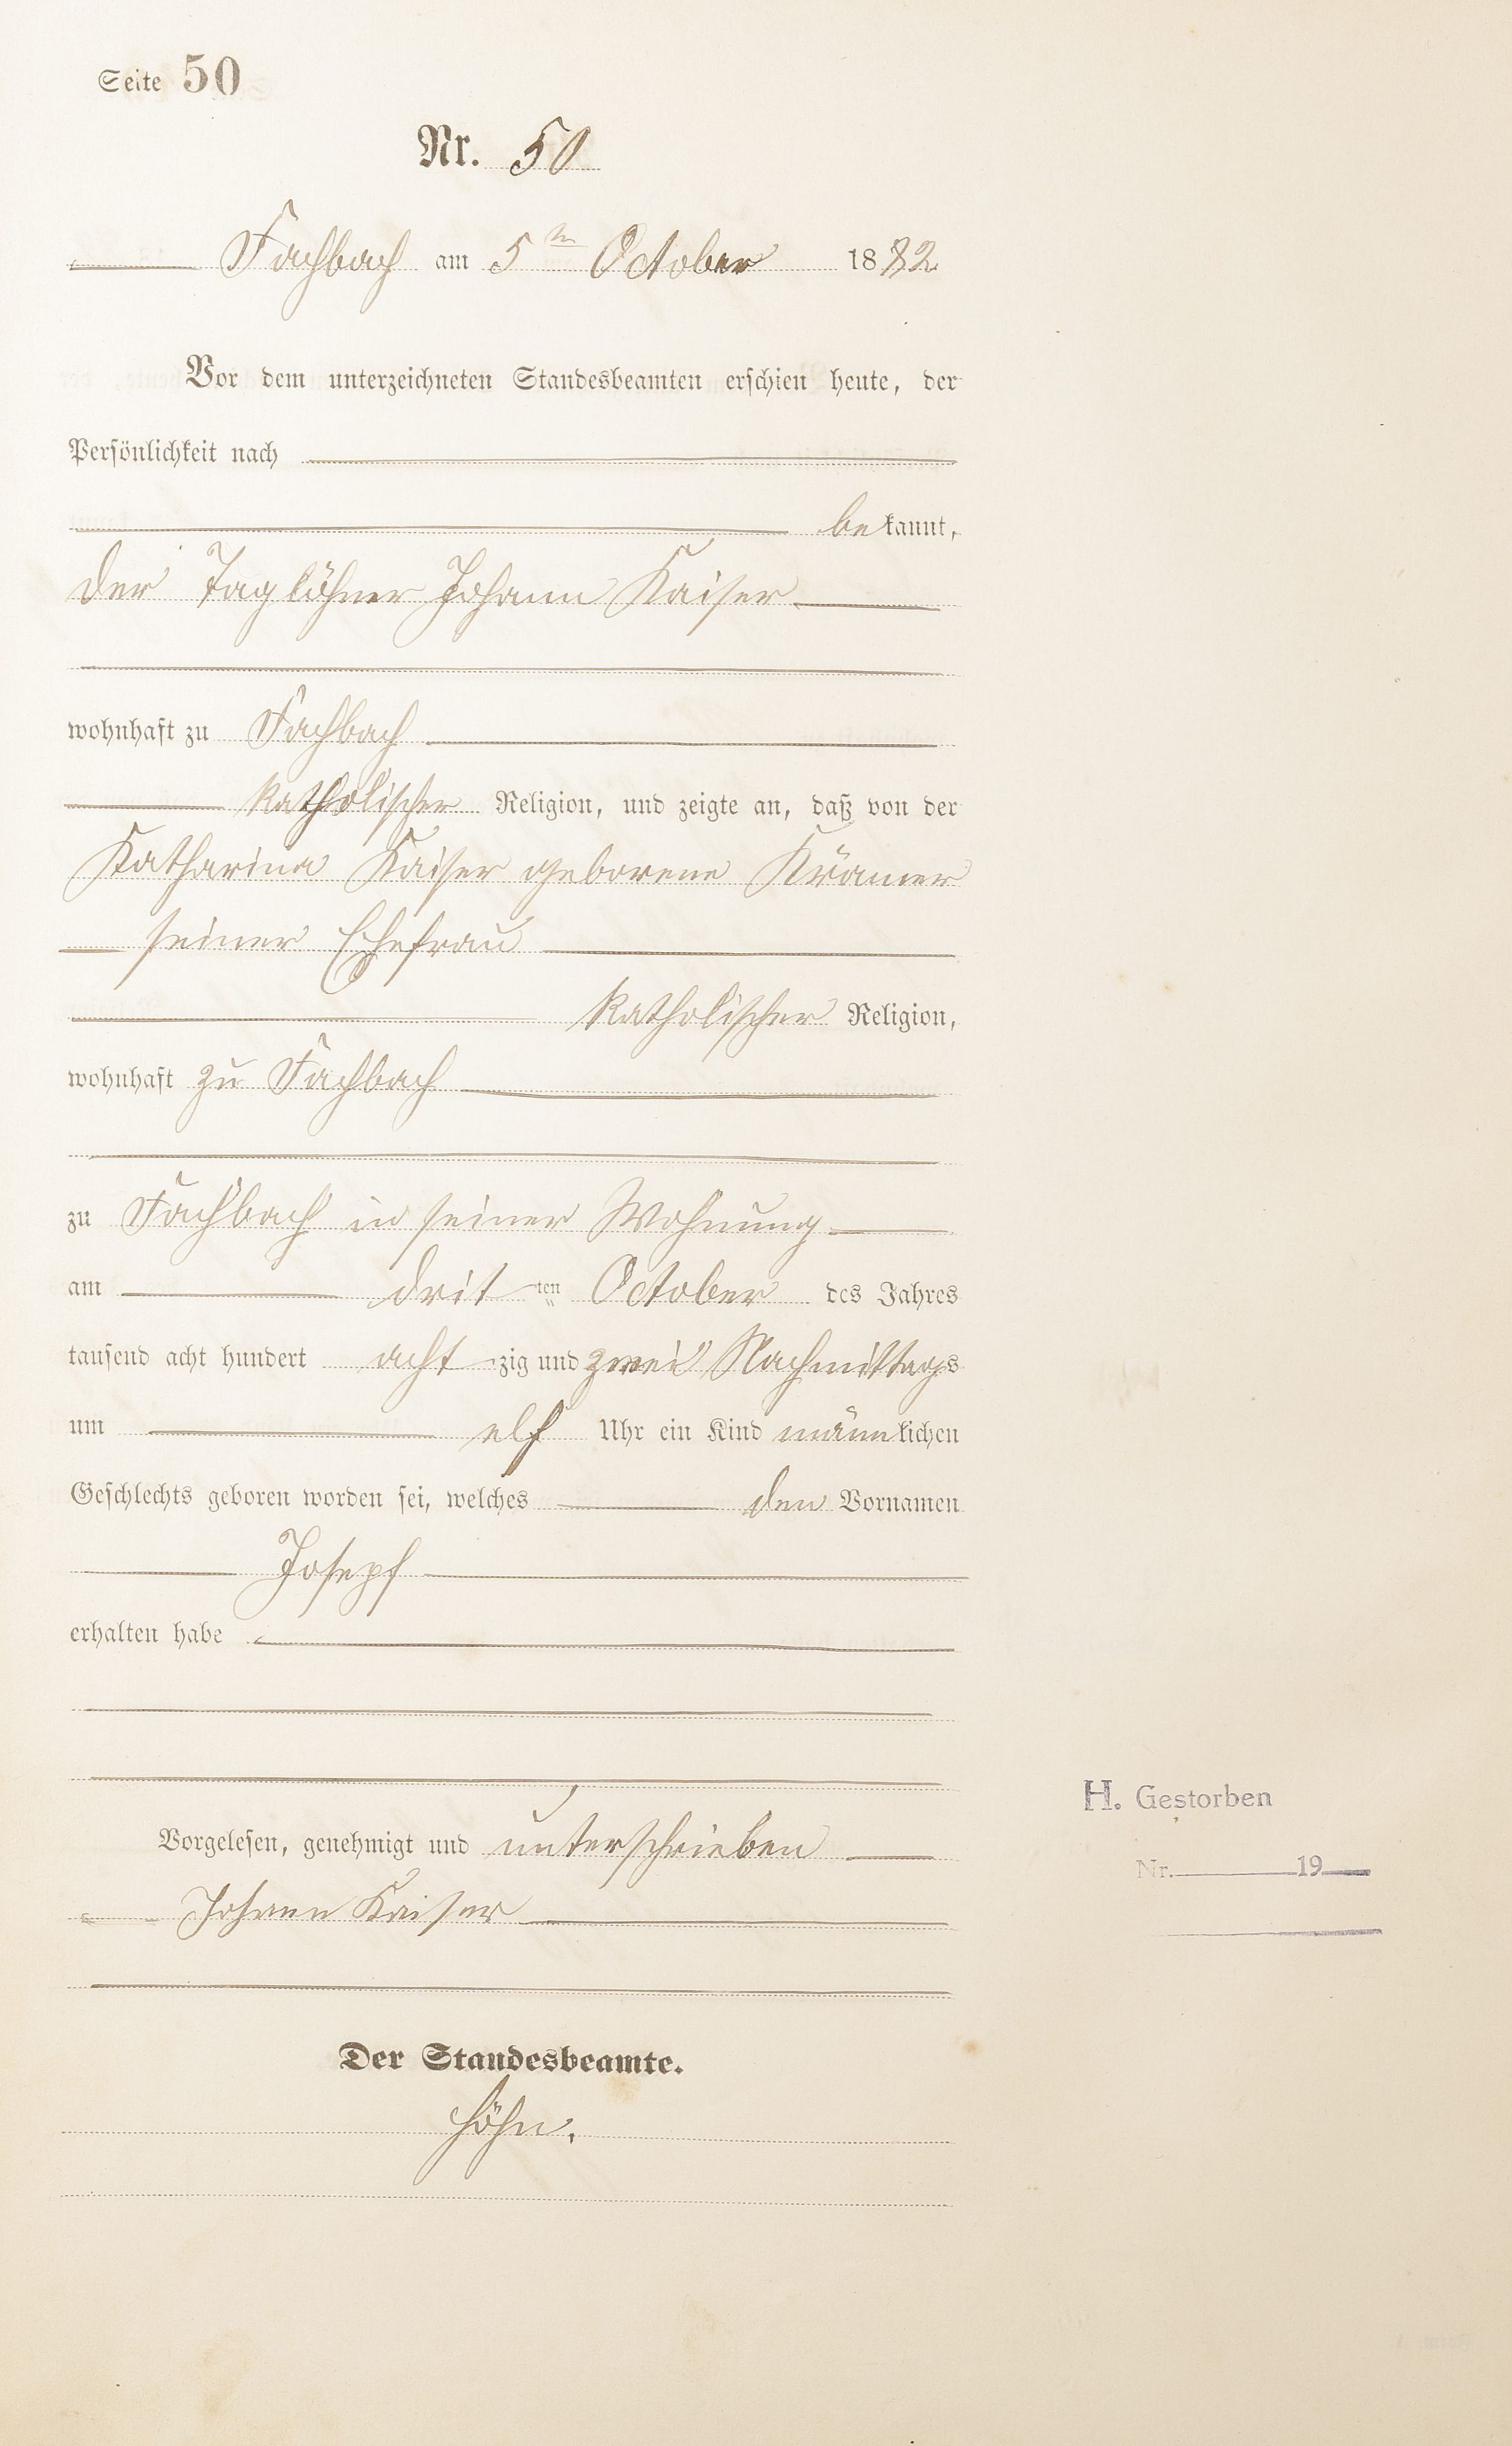 Seite 50
Nr. 50
Fachbach am 5ten October 1882
Vor dem unterzeichneten Standesbeamten erschien heute, der
Persönlichkeit nach
bekannt,
der Taglöhner Johann Kaiser
wohnhaft zu Fachbach
katholischer Religion, und zeigte an, daß von der
Katharina Kaiser geborene Krämer
seiner Ehefrau
katholischer Religion,
wohnhaft zu Fachbach
zu Fachbach in seiner Wohnung
am dritten October des Jahres
tausend acht hundert achtzig und zwei Nachmittags
um elf Uhr ein Kind männlichen
Geschlechts geboren worden sei, welches den Vornamen
Joseph
erhalten habe
Vorgelesen, genehmigt und unterschrieben
Johann Kaiser
Der Standesbeamte.
Höhn.
H. Gestorben
Nr. 19